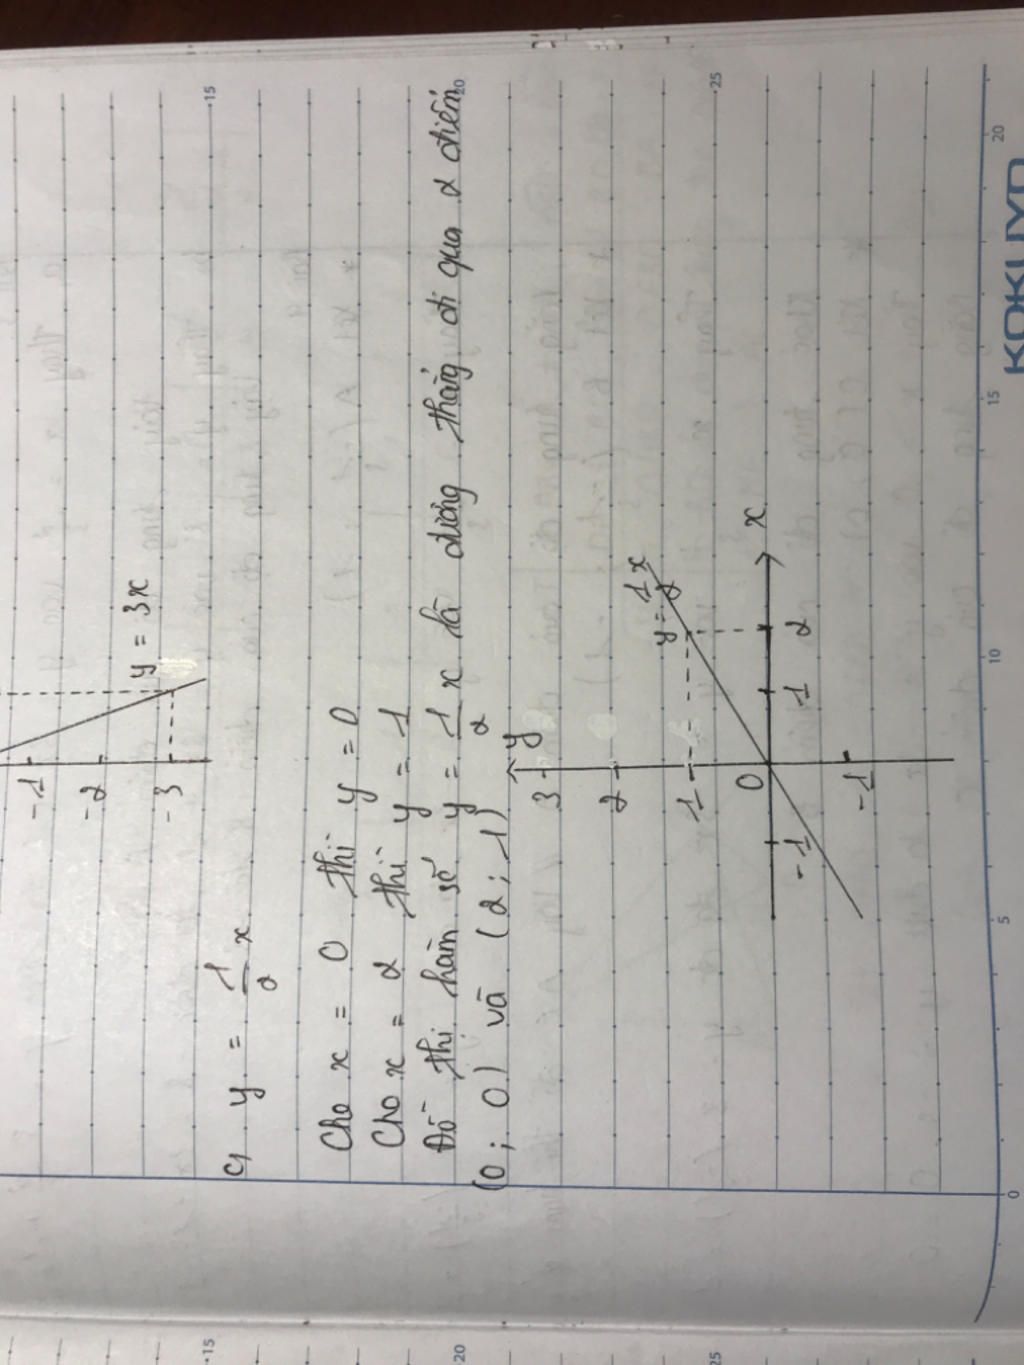 -1
-2
-3
y = 3x
c, y = 1/2 x
Cho x = 0 thì y = 0
Cho x = 2 thì y = 1
Đồ thị hàm số y = 1/2 x là đường thẳng đi qua 2 điểm
(0; 0) và (2; 1)
y
3
2
1
y = 1/2 x
0
-1
1
2
x
-1
15
20
25
0
5
10
15
20
KOKUYO
15
20
25